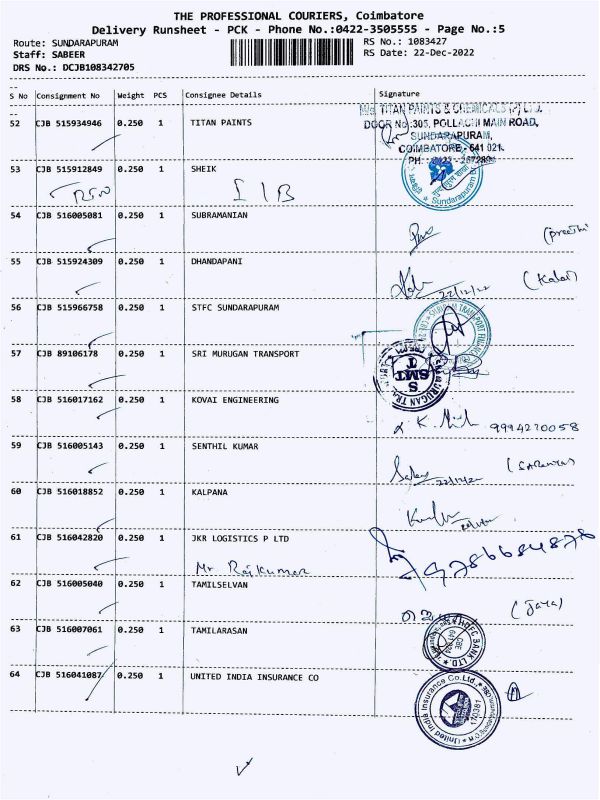 THE PROFESSIONAL COURIERS, Coimbatore
Delivery Runsheet - PCK - Phone No.:0422-3505555 - Page No.:5
Route: SUNDARAPURAM RS No.: 1083427
Staff: SABEER RS Date: 22-Dec-2022
DRS No.: DCJB108342705
S No Consignment No Weight PCS Consignee Details Signature
52 CJB 515934946 0.250 1 TITAN PAINTS
M/s. TITAN PAINTS & CHEMICALS (P) LTD.
DOOR No.:305, POLLACHI MAIN ROAD,
SUNDARAPURAM,
COIMBATORE - 641 021.
PH.: 0422 -
53 CJB 515912849 0.250 1 SHEIK
I I B
Sundarapuram
54 CJB 516005081 0.250 1 SUBRAMANIAN
(Preethi
55 CJB 515924309 0.250 1 DHANDAPANI
22/12/22 (Kalai)
56 CJB 515966758 0.250 1 STFC SUNDARAPURAM
57 CJB 89106178 0.250 1 SRI MURUGAN TRANSPORT
SMT
58 CJB 516017162 0.250 1 KOVAI ENGINEERING
9994270058
59 CJB 516005143 0.250 1 SENTHIL KUMAR
22/12/22
60 CJB 516018852 0.250 1 KALPANA
61 CJB 516042820 0.250 1 JKR LOGISTICS P LTD
Mr Rajkumar
9786684876
62 CJB 516005040 0.250 1 TAMILSELVAN
(Jaya)
63 CJB 516007061 0.250 1 TAMILARASAN
HDFC BANK LTD.
CBE
64 CJB 516041087 0.250 1 UNITED INDIA INSURANCE CO
United India Insurance Co.Ltd.
170381